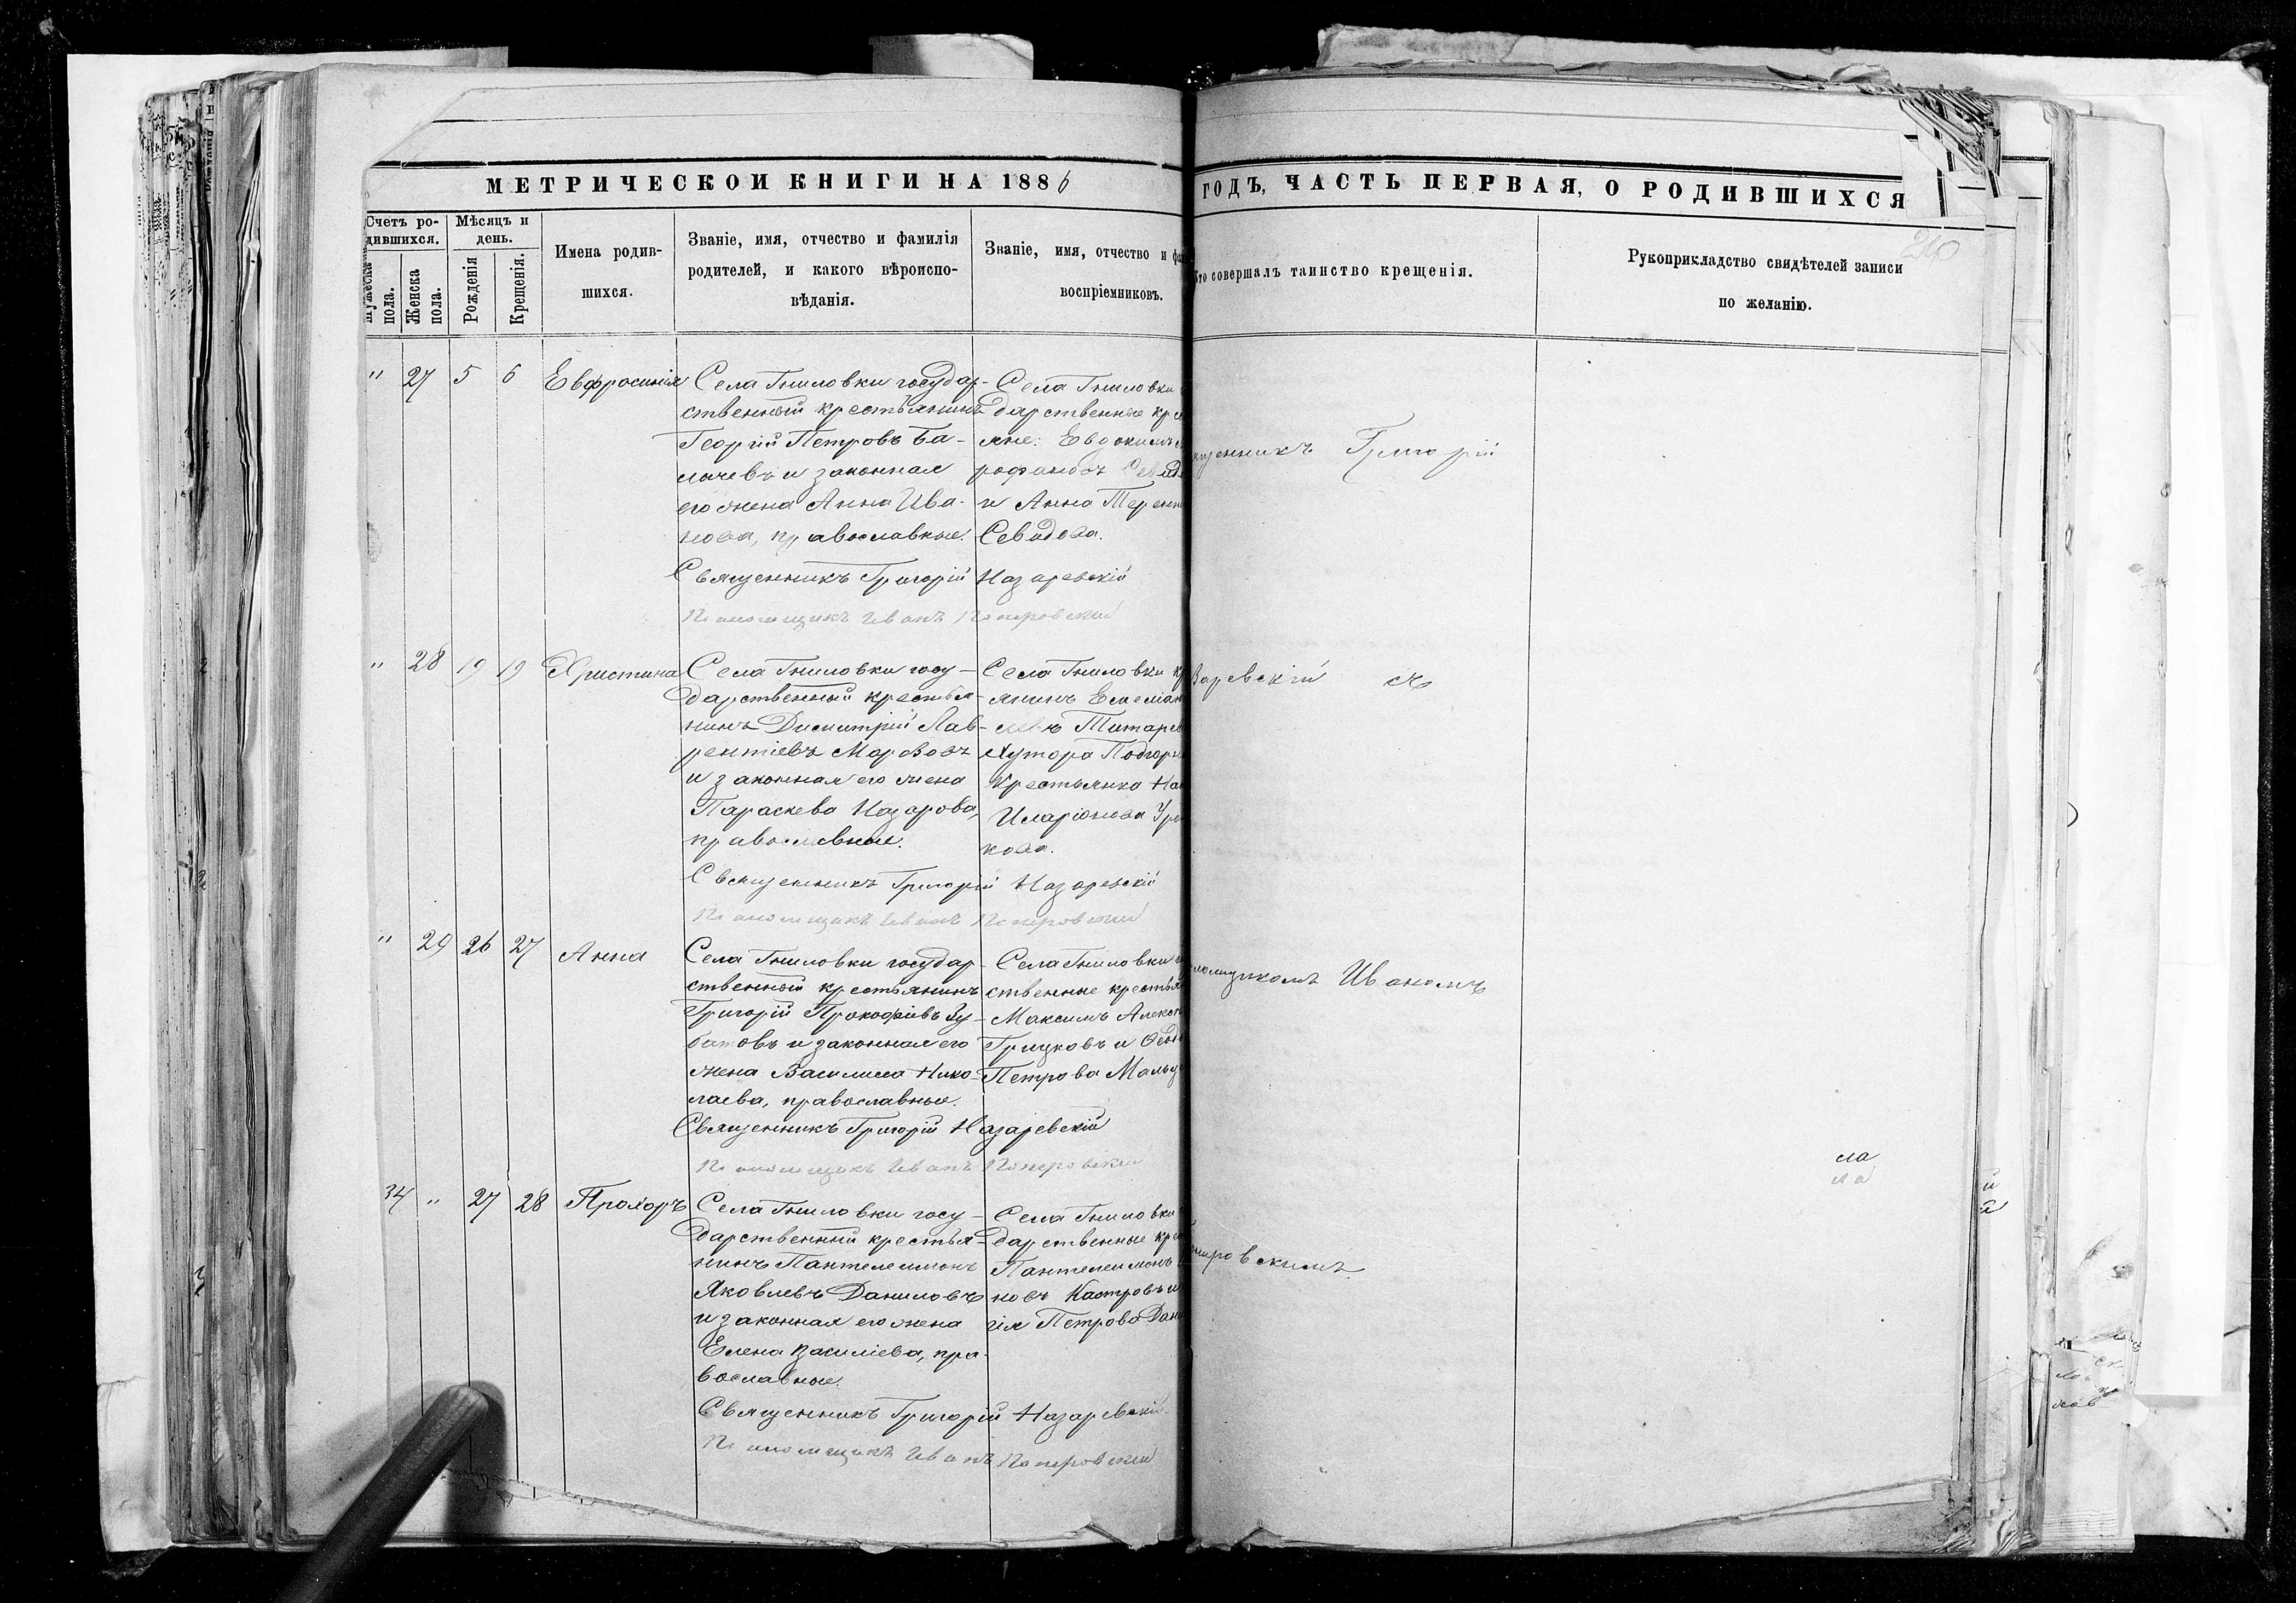 МЕТРИЧЕСКОЙ КНИГИ НА 1886
ГОДЪ, ЧАСТЬ ПЕРВАЯ, О РОДИВШИХСЯ
Счетъ ро-
дившихся.
Мужеска
пола.
Женска
пола.
Мѣсяцъ и
день.
Рожденія
Крещенія.
Имена родив-
шихся.
Званіе, имя, отчество и фамилія
родителей, и какого вѣроиспо-
вѣданія.
Званіе, имя, отчество и фа
воспріемниковъ.
Кто совершалъ таинство крещенія.
Рукоприкладство свидѣтелей записи
по желанію.
" 27 5 6 Евфросинія
Села Гниловки государ-
ственный крестьянинъ
Георгій Петровъ Ба-
и законная
его жена Анна Ива-
нова, православные.
Села Гниловки
дарственные кре
яне: Евдокимъ
и Анна Терент
Севидова.
Священникъ Григорій Назаревскій
Псаломщикъ Иванъ
" 28 19 19 Христина
Села Гниловки госу-
дарственный крестья-
нинъ Димитрій Лав-
рентіевъ Морозовъ
и законная его жена
Параскева Назарова,
православные.
Села Гниловки кр
янинъ Емеліан
Титарев
Хутора Подгорн
крестьянка На
Иларіонова
кова.
Священникъ Григорій Назаревскій
Псаломщикъ Иванъ
" 29 26 27 Анна
Села Гниловки государ-
ственный крестьянинъ
Григорій Прокофіевъ Зу-
батовъ и законная его
жена Василиса Нико-
лаева, православные.
Села Гниловки
ственные крестья
Максимъ Алекс
Грицковъ и Ѳеод
Петрова
Священникъ Григорій Назаревскій
Псаломщикъ Иванъ
34 " 27 28 Прохоръ
Села Гниловки госу-
дарственный крестья-
нинъ Пантелеимонъ
Яковлевъ Даниловъ
и законная его жена
Елена Василіева, пра-
вославные.
Села Гниловки
дарственные кре
Пантелеимонъ
новъ Костровъ и
гія Петрова Дан
Священникъ Григорій Назаревскій.
Псаломщикъ Иванъ
щенникъ Григорій
заревскій съ
ломщикомъ Иваномъ
ровскимъ.
ла